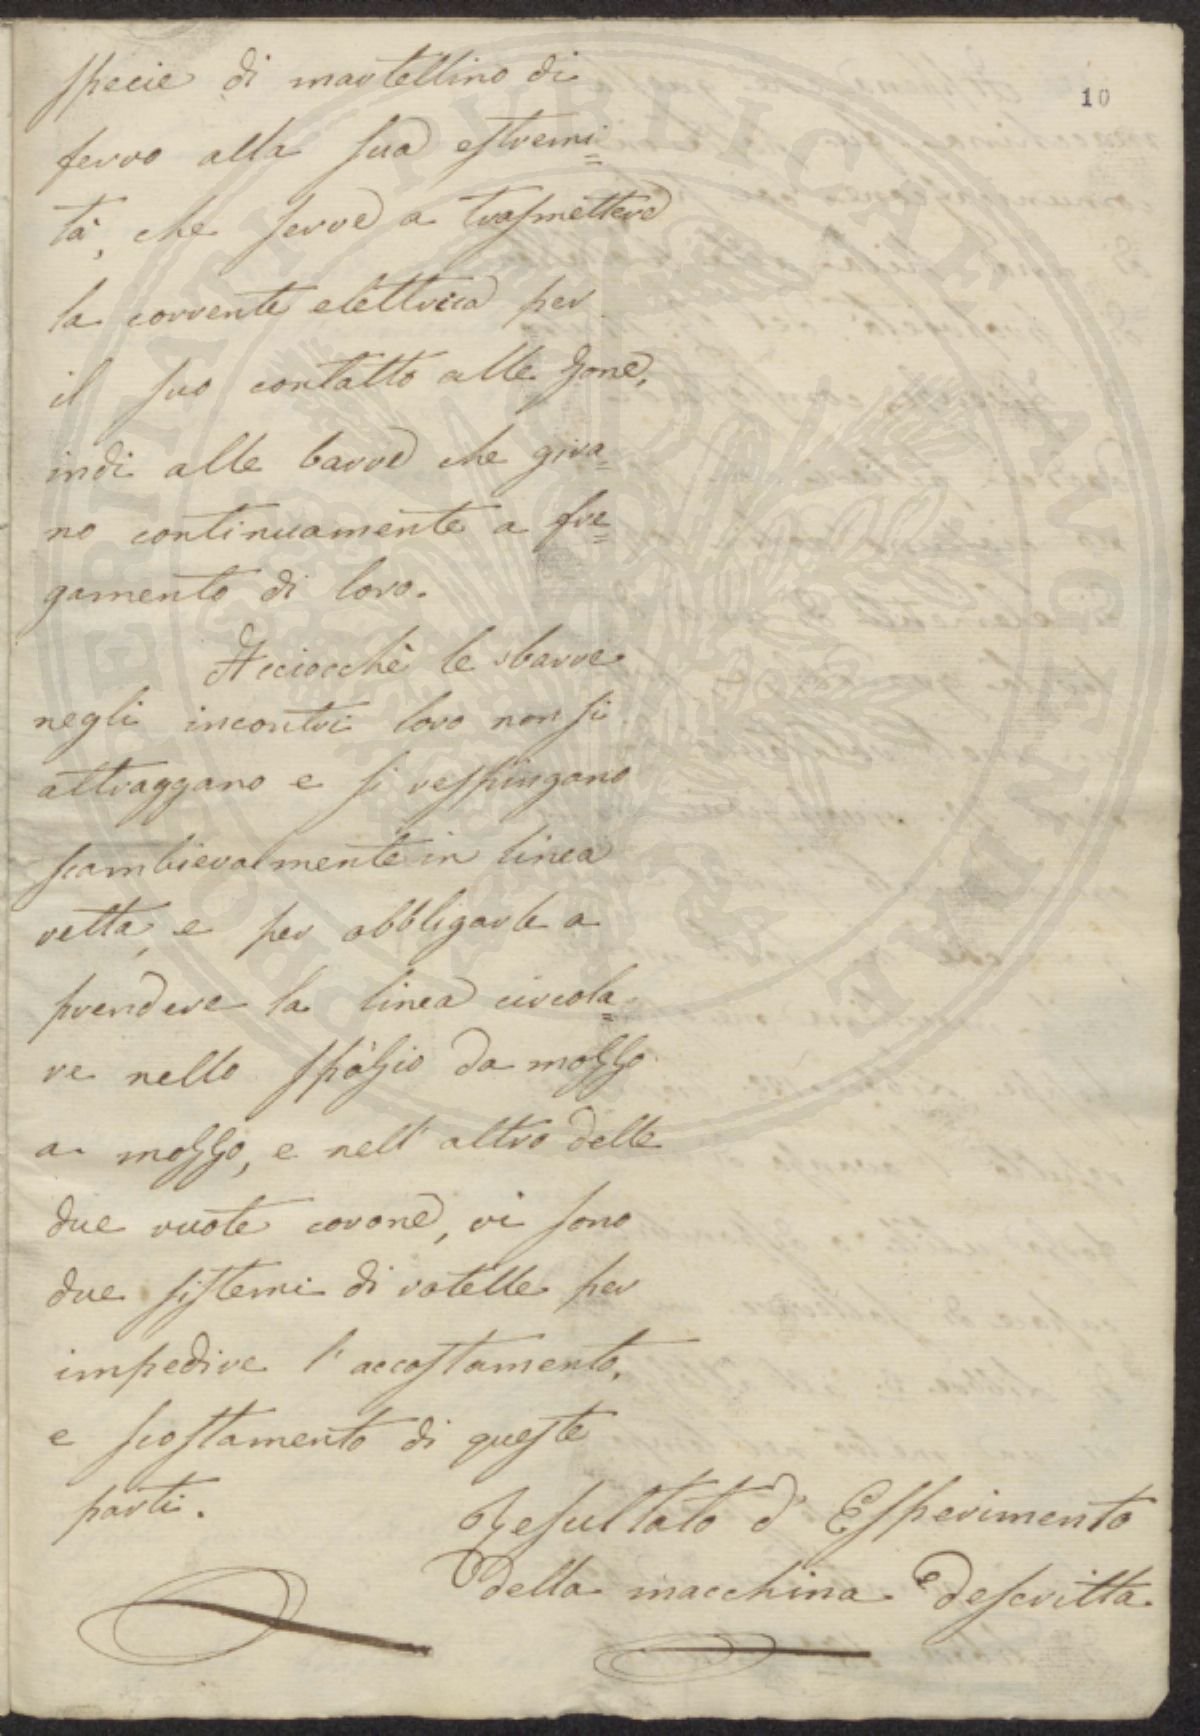 10
specie di martellino di
ferro alla sua estremi=
tà, che serve a trasmettere
la corrente elettrica per
il suo contatto alle zone,
indi alle barre che gira=
no continuamente a fre=
gamento di loro.
Acciocchè le sbarre
negli incontri loro non si
attraggano e si respingano
scambievolmente in linea
retta, e per obbligarle a
prendere la linea circola=
re nello spàzio da mozzo
a mozzo, e nell' altro delle
due ruote corone, vi sono
due sistemi di rotelle per
impedire l' accostamento,
e scostamento di queste
parti.
Resultato d' Esperimento
della macchina descritta.